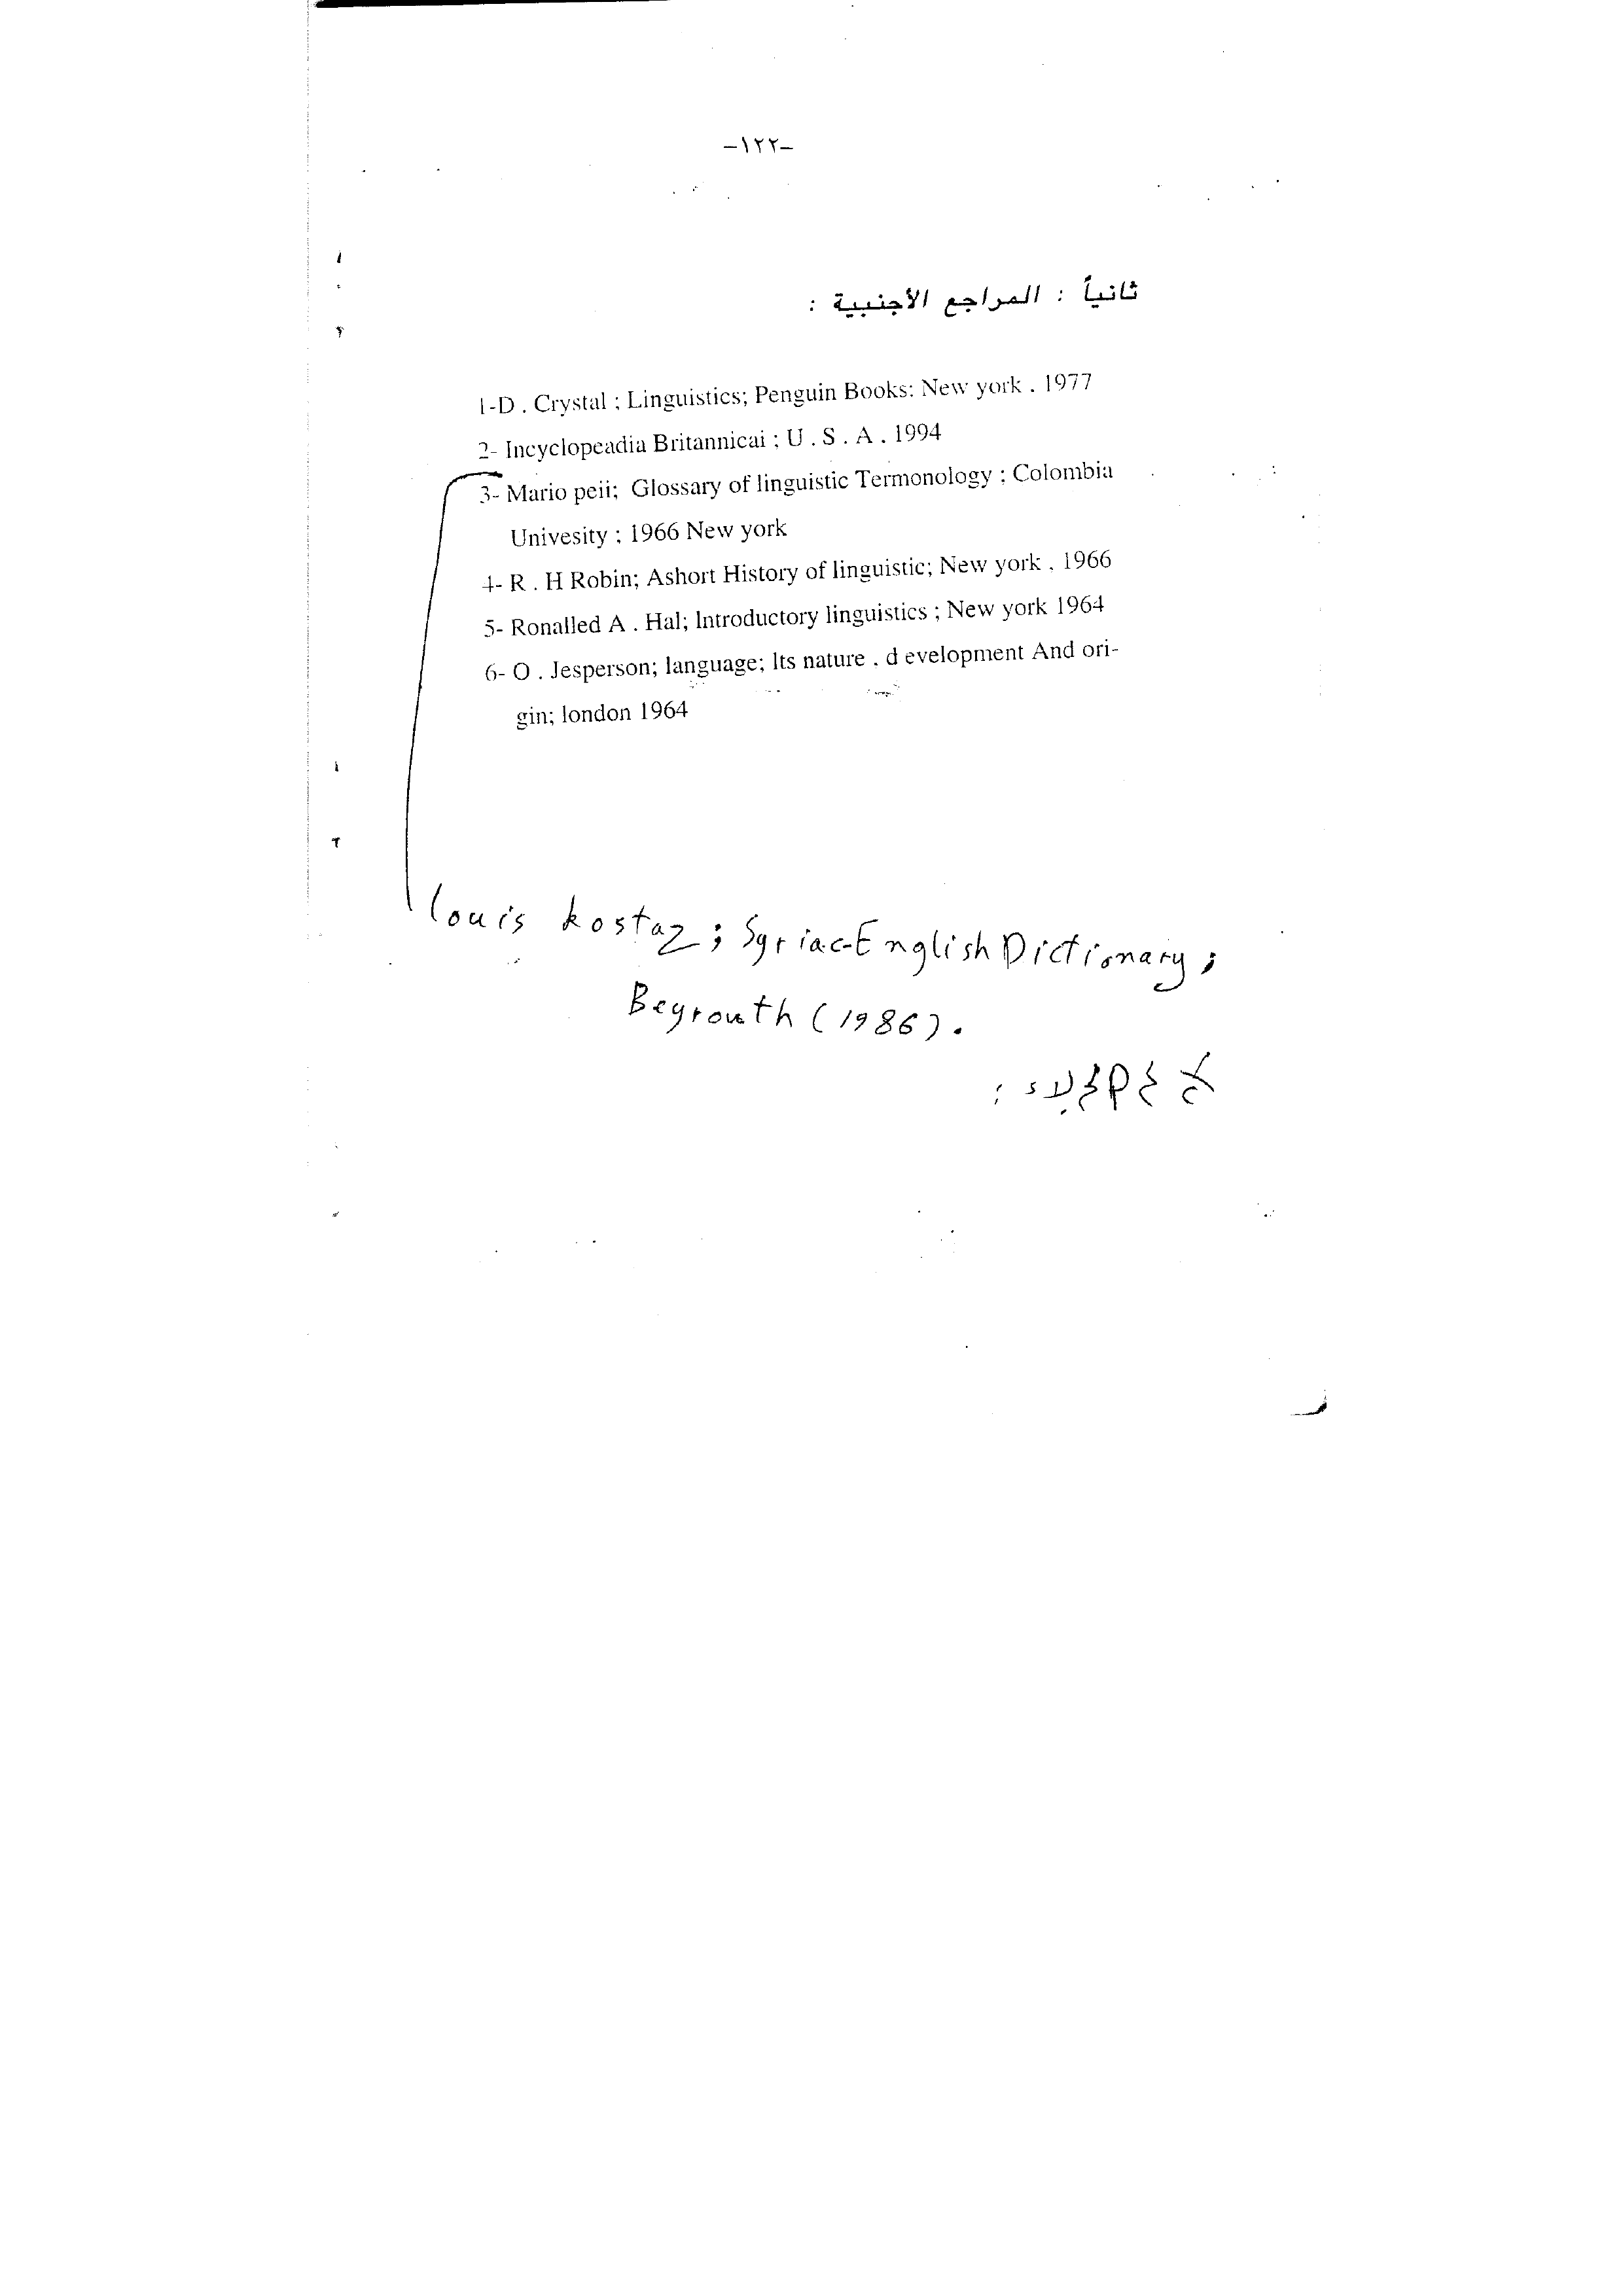 -١٢٢-
ثانياً : المراجع الأجنبية :
1-D . Crystal ; Linguistics; Penguin Books: New york . 1977
2- Incyclopeadia Britannicai ; U . S . A . 1994
3- Mario peii; Glossary of linguistic Termonology ; Colombia
Univesity ; 1966 New york
4- R . H Robin; Ashort History of linguistic; New york . 1966
5- Ronalled A . Hal; Introductory linguistics ; New york 1964
6- O . Jesperson; language; Its nature . d evelopment And ori-
gin; london 1964
Louis kostaz ; Syriac-English Dictionary ;
Beyrouth ( 1986 ) .